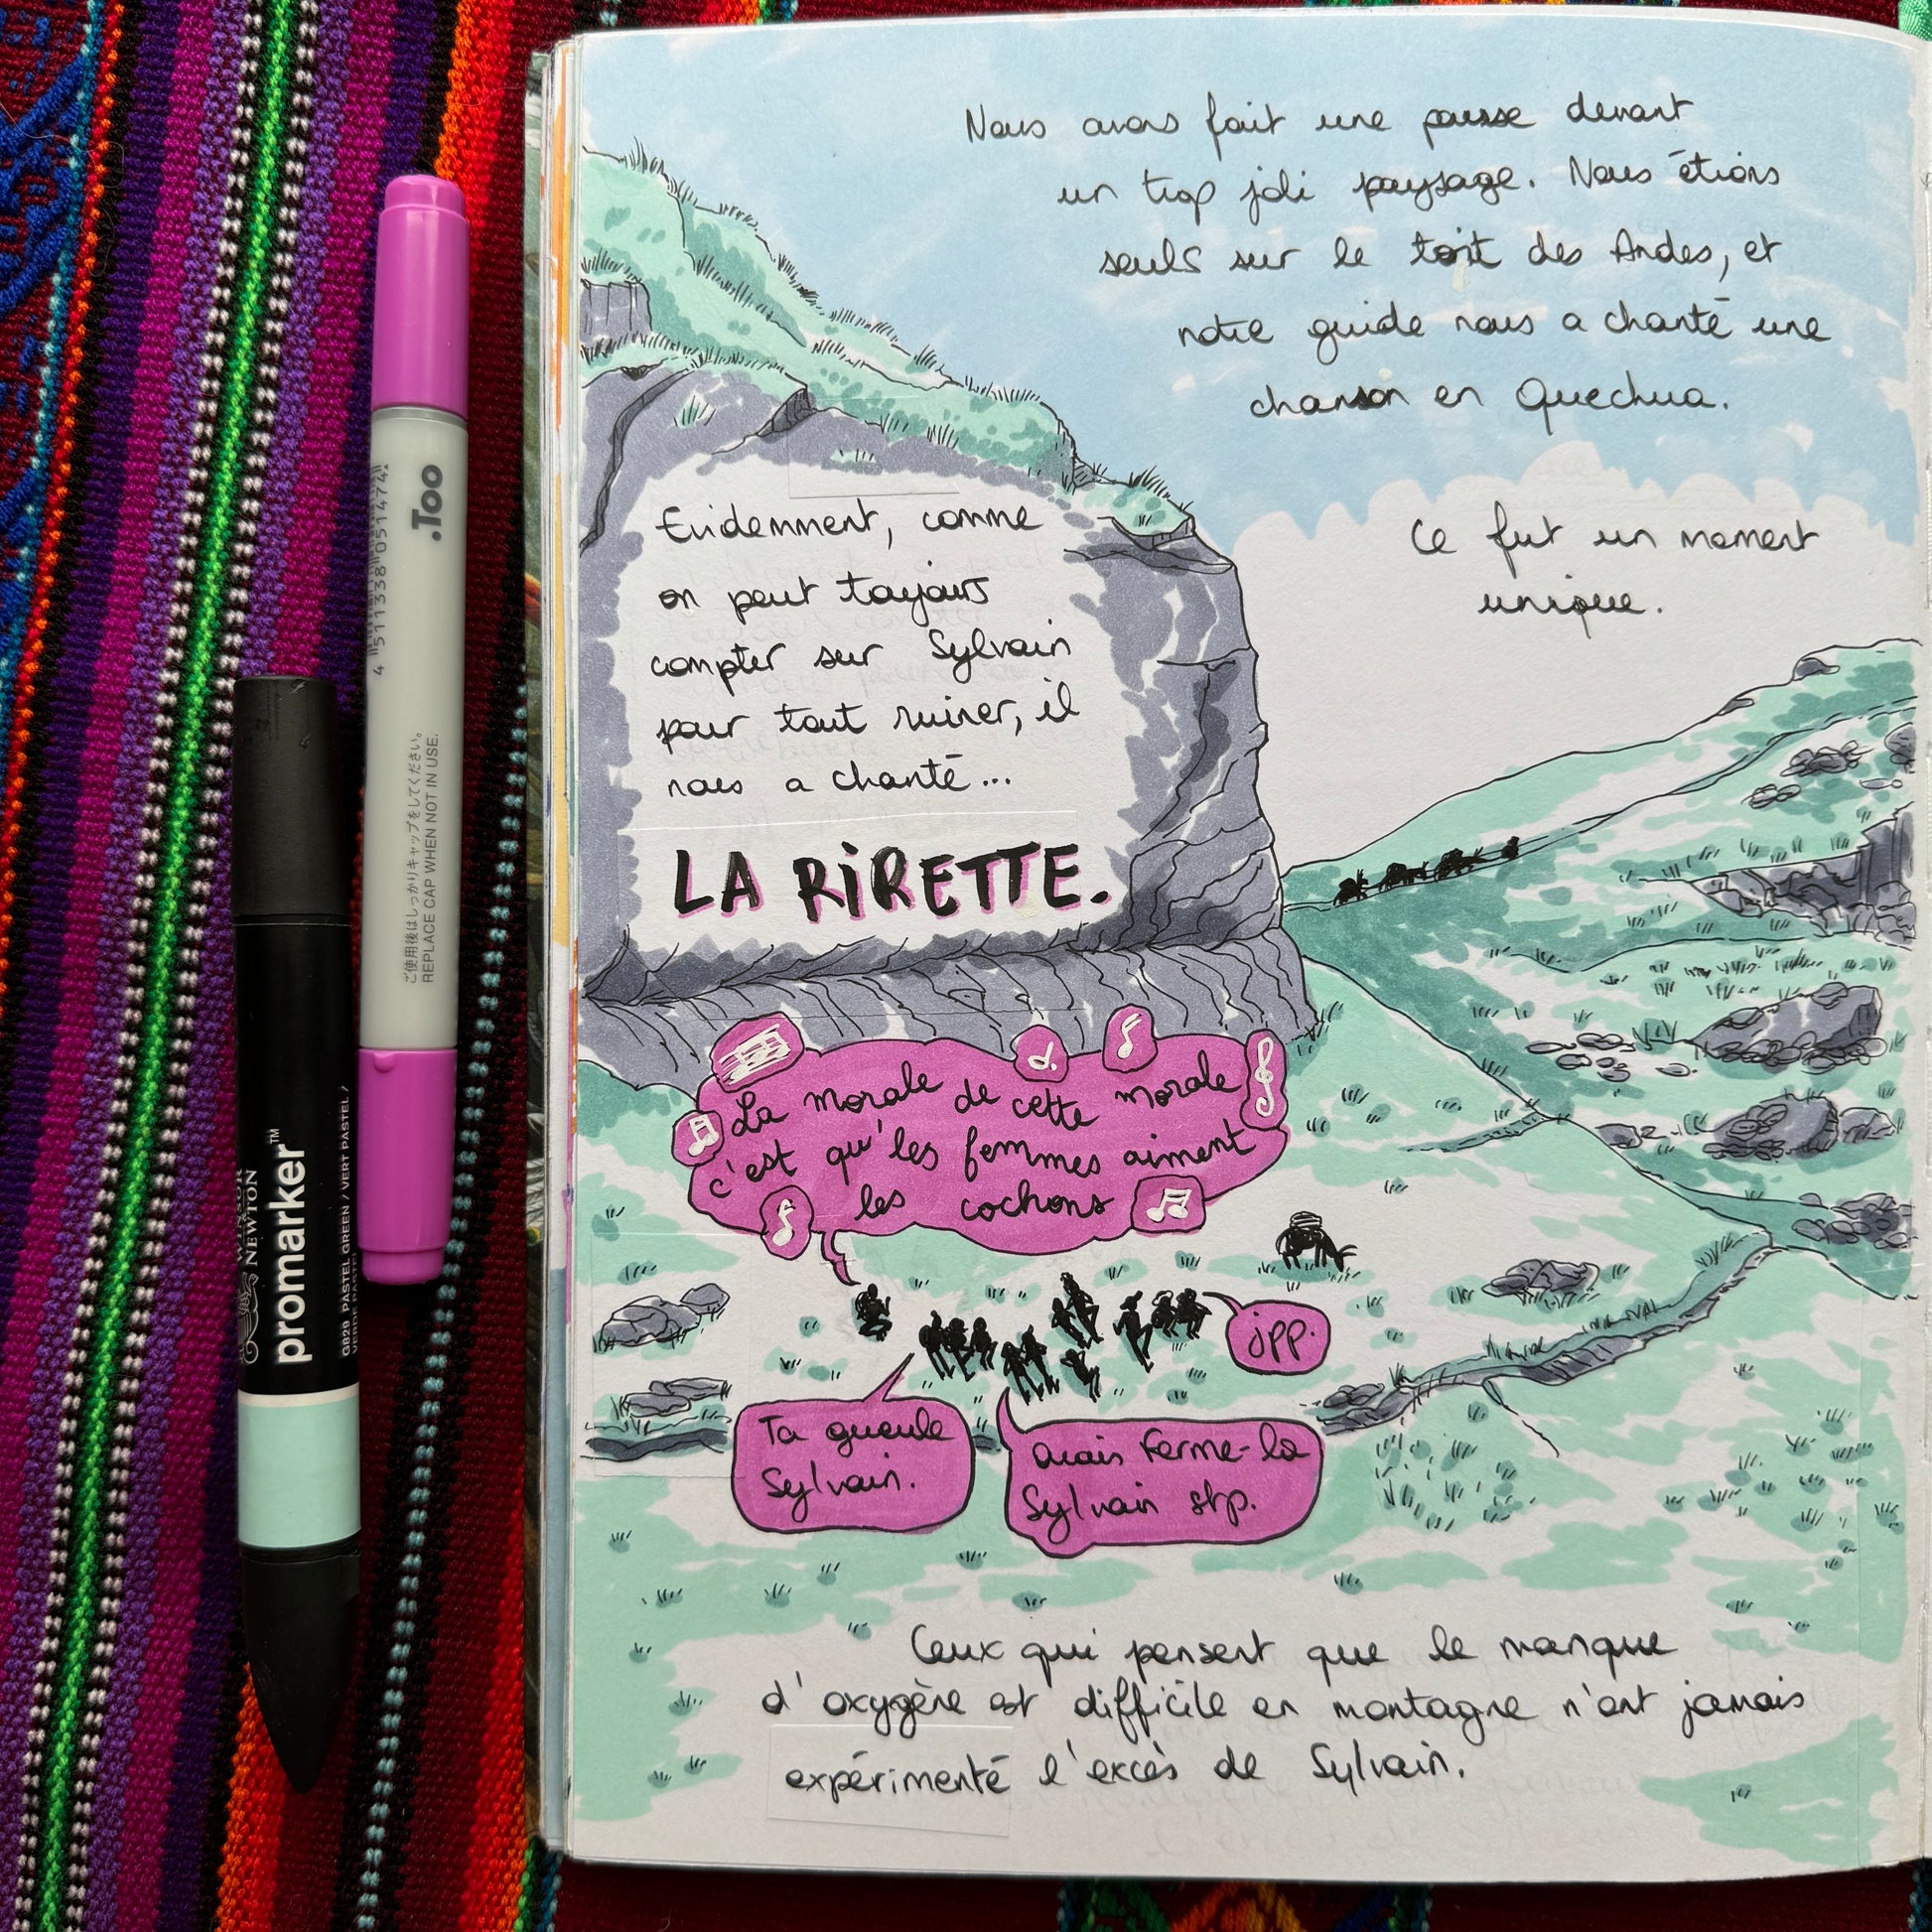 Nous avons fait une pause devant
un trop joli paysage. Nous étions
seuls sur le toit des Andes, et
notre guide nous a chanté une
chanson en Quechua.
Ce fut un moment
unique.
Evidemment, comme
on peut toujours
compter sur Sylvain
pour tout ruiner, il
nous a chanté...
LA RIRETTE.
La morale de cette morale
c'est qu'les femmes aiment
les cochons
jpp.
Ta gueule
Sylvain.
Ouais Ferme-la
Sylvain stp.
Ceux qui pensent que le manque
d'oxygène est difficile en montagne n'ont jamais
expérimenté l'excès de Sylvain.
.Too
4 511338 051474
ご使用後はしっかりキャップをしてください。
REPLACE CAP WHEN NOT IN USE.
WINSOR
& NEWTON
promarker™
G829 PASTEL GREEN / VERT PASTEL /
VERDE PASTEL